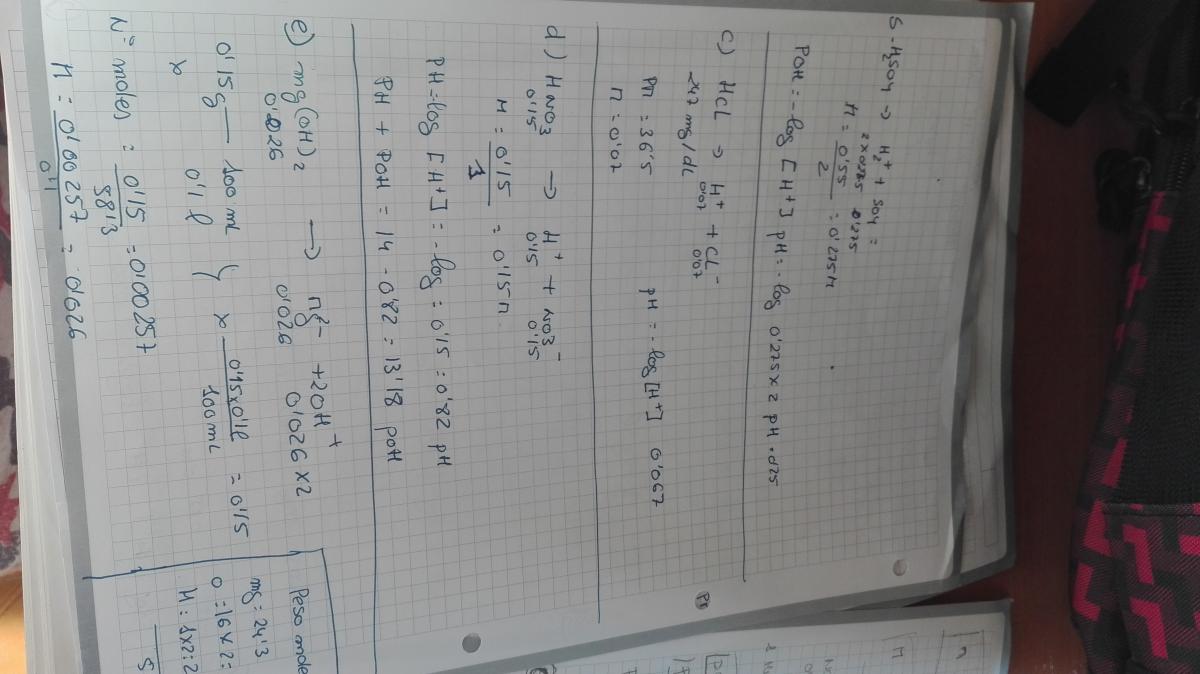 S-H2SO4 → H2+ + SO4=
2x0'275 0'275
M = 0'55 / 2 = 0'275M
POH = -log [H+] pH = -log 0'275x2 pH = 0'25
c) HCL → H+ + CL-
0'07 0'07
247 mg/dL
Pm = 36'5
pH = -log [H+] 0'067
M = 0'07
d) HNO3 → H+ + NO3-
0'15 0'15 0'15
M = 0'15 / 1 = 0'15 M
PH = log [H+] = -log = 0'15 = 0'82 pH
PH + POH = 14 - 0'82 = 13'18 pOH
e) mg(OH)2 → Mg2- + 2OH+
0'026 0'026 0'026 x2
0'15g — 100 ml
x 0'1 l
x — 0'15x0'1l / 100ml = 0'15
Nº moles = 0'15 / 58'3 = 0'00257
M = 0'00257 / 0'1 = 0'026
Peso mole
mg = 24'3
O = 16 x 2 =
H = 1x2 = 2
5